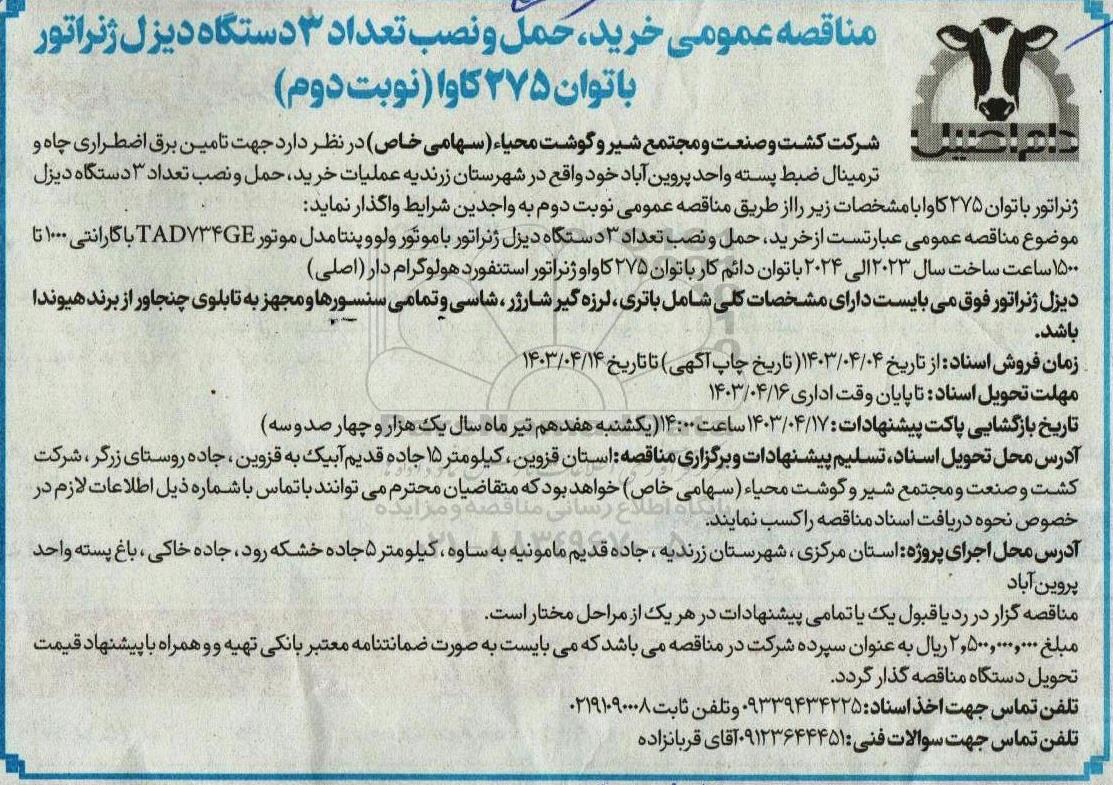 مناقصه عمومی خرید، حمل و نصب تعداد ۳ دستگاه دیزل ژنراتور
با توان ۲۷۵ کاوا (نوبت دوم)
دام اصیل
شرکت کشت و صنعت و مجتمع شیر و گوشت محیاء (سهامی خاص) در نظر دارد جهت تامین برق اضطراری چاه و
ترمینال ضبط پسته واحد پروین آباد خود واقع در شهرستان زرندیه عملیات خرید، حمل و نصب تعداد ۳ دستگاه دیزل
ژنراتور با توان ۲۷۵ کاوا با مشخصات زیر را از طریق مناقصه عمومی نوبت دوم به واجدین شرایط واگذار نماید:
موضوع مناقصه عمومی عبارتست از خرید، حمل و نصب تعداد ۳ دستگاه دیزل ژنراتور با موتور ولوو پنتا مدل موتور TAD۷۳۴GE با گارانتی ۱۰۰۰ تا
۱۵۰۰ ساعت ساخت سال ۲۰۲۳ الی ۲۰۲۴ با توان دائم کار با توان ۲۷۵ کاوا و ژنراتور استنفورد هولوگرام دار (اصلی)
دیزل ژنراتور فوق می بایست دارای مشخصات کلی شامل باتری، لرزه گیر شارژر، شاسی و تمامی سنسورها و مجهز به تابلوی چنج اور از برند هیوندا
باشد.
زمان فروش اسناد: از تاریخ ۱۴۰۳/۰۴/۰۴ (تاریخ چاپ آگهی) تا تاریخ ۱۴۰۳/۰۴/۱۴
مهلت تحویل اسناد: تا پایان وقت اداری ۱۴۰۳/۰۴/۱۶
تاریخ بازگشایی پاکت پیشنهادات: ۱۴۰۳/۰۴/۱۷ ساعت ۱۴:۰۰ (یکشنبه هفدهم تیر ماه سال یک هزار و چهار صد و سه)
آدرس محل تحویل اسناد، تسلیم پیشنهادات و برگزاری مناقصه: استان قزوین، کیلومتر ۱۵ جاده قدیم آبیک به قزوین، جاده روستای زرگر، شرکت
کشت و صنعت و مجتمع شیر و گوشت محیاء (سهامی خاص) خواهد بود که متقاضیان محترم می توانند با تماس با شماره ذیل اطلاعات لازم در
خصوص نحوه دریافت اسناد مناقصه را کسب نمایند.
آدرس محل اجرای پروژه: استان مرکزی، شهرستان زرندیه، جاده قدیم مامونیه به ساوه، کیلومتر ۵ جاده خشکه رود، جاده خاکی، باغ پسته واحد
پروین آباد
مناقصه گزار در رد یا قبول یک یا تمامی پیشنهادات در هر یک از مراحل مختار است.
مبلغ ۲,۵۰۰,۰۰۰,۰۰۰ ریال به عنوان سپرده شرکت در مناقصه می باشد که می بایست به صورت ضمانتنامه معتبر بانکی تهیه و و همراه با پیشنهاد قیمت
تحویل دستگاه مناقصه گذار گردد.
تلفن تماس جهت اخذ اسناد: ۰۹۳۳۹۴۳۴۲۲۵ و تلفن ثابت ۰۲۱۹۱۰۹۰۰۰۸
تلفن تماس جهت سوالات فنی: ۰۹۱۲۳۶۴۴۴۵۱ آقای قربانزاده